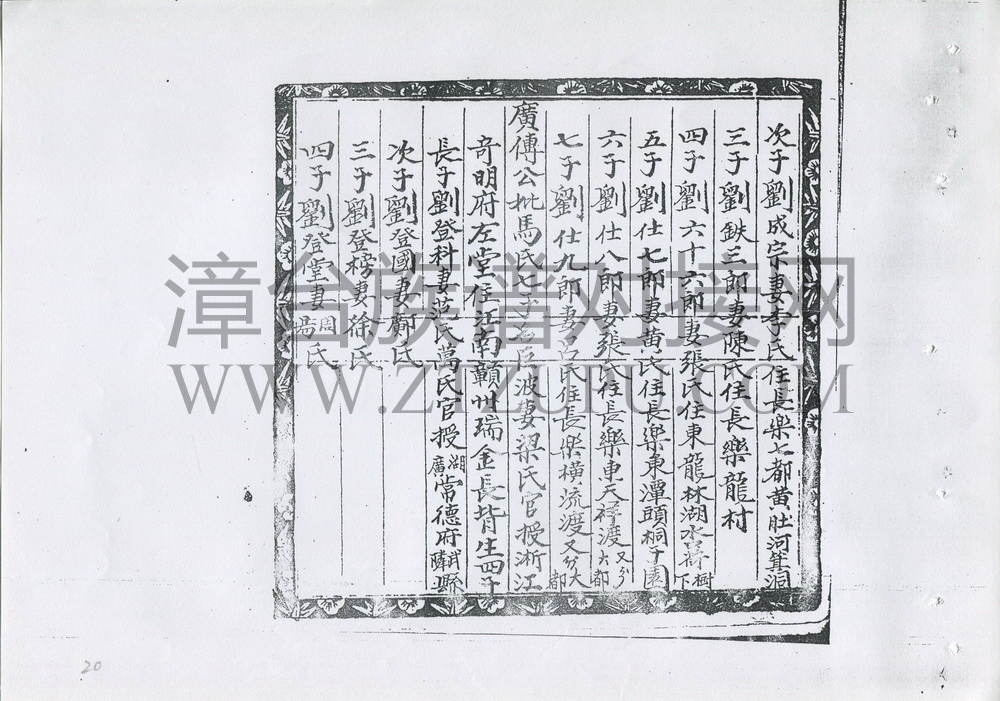 次子劉成宗妻李氏住長樂七都黄肚河箕洞
三子劉鉄三郎妻陳氏住長樂龍村
四子劉六十六郎妻張氏住東龍林湖水寨樹下
五子劉仕七郎妻黄氏住長樂東潭頭桐子園
六子劉仕八郎妻張氏住長樂東天祥渡又分大都
七子劉仕九郎妻呂氏住長樂橫流渡又分大都
廣傳公批馬氏七子巨波妻梁氏官授淅江
竒明府左堂住江南贛州瑞金長背生四子
長子劉登科妻范氏萬氏官授湖廣常德府武陵縣
次子劉登國妻鄺氏
三子劉登榜妻徐氏
四子劉登堂妻周楊氏
漳台族谱对接网
WWW.ZTZUPU.COM
20